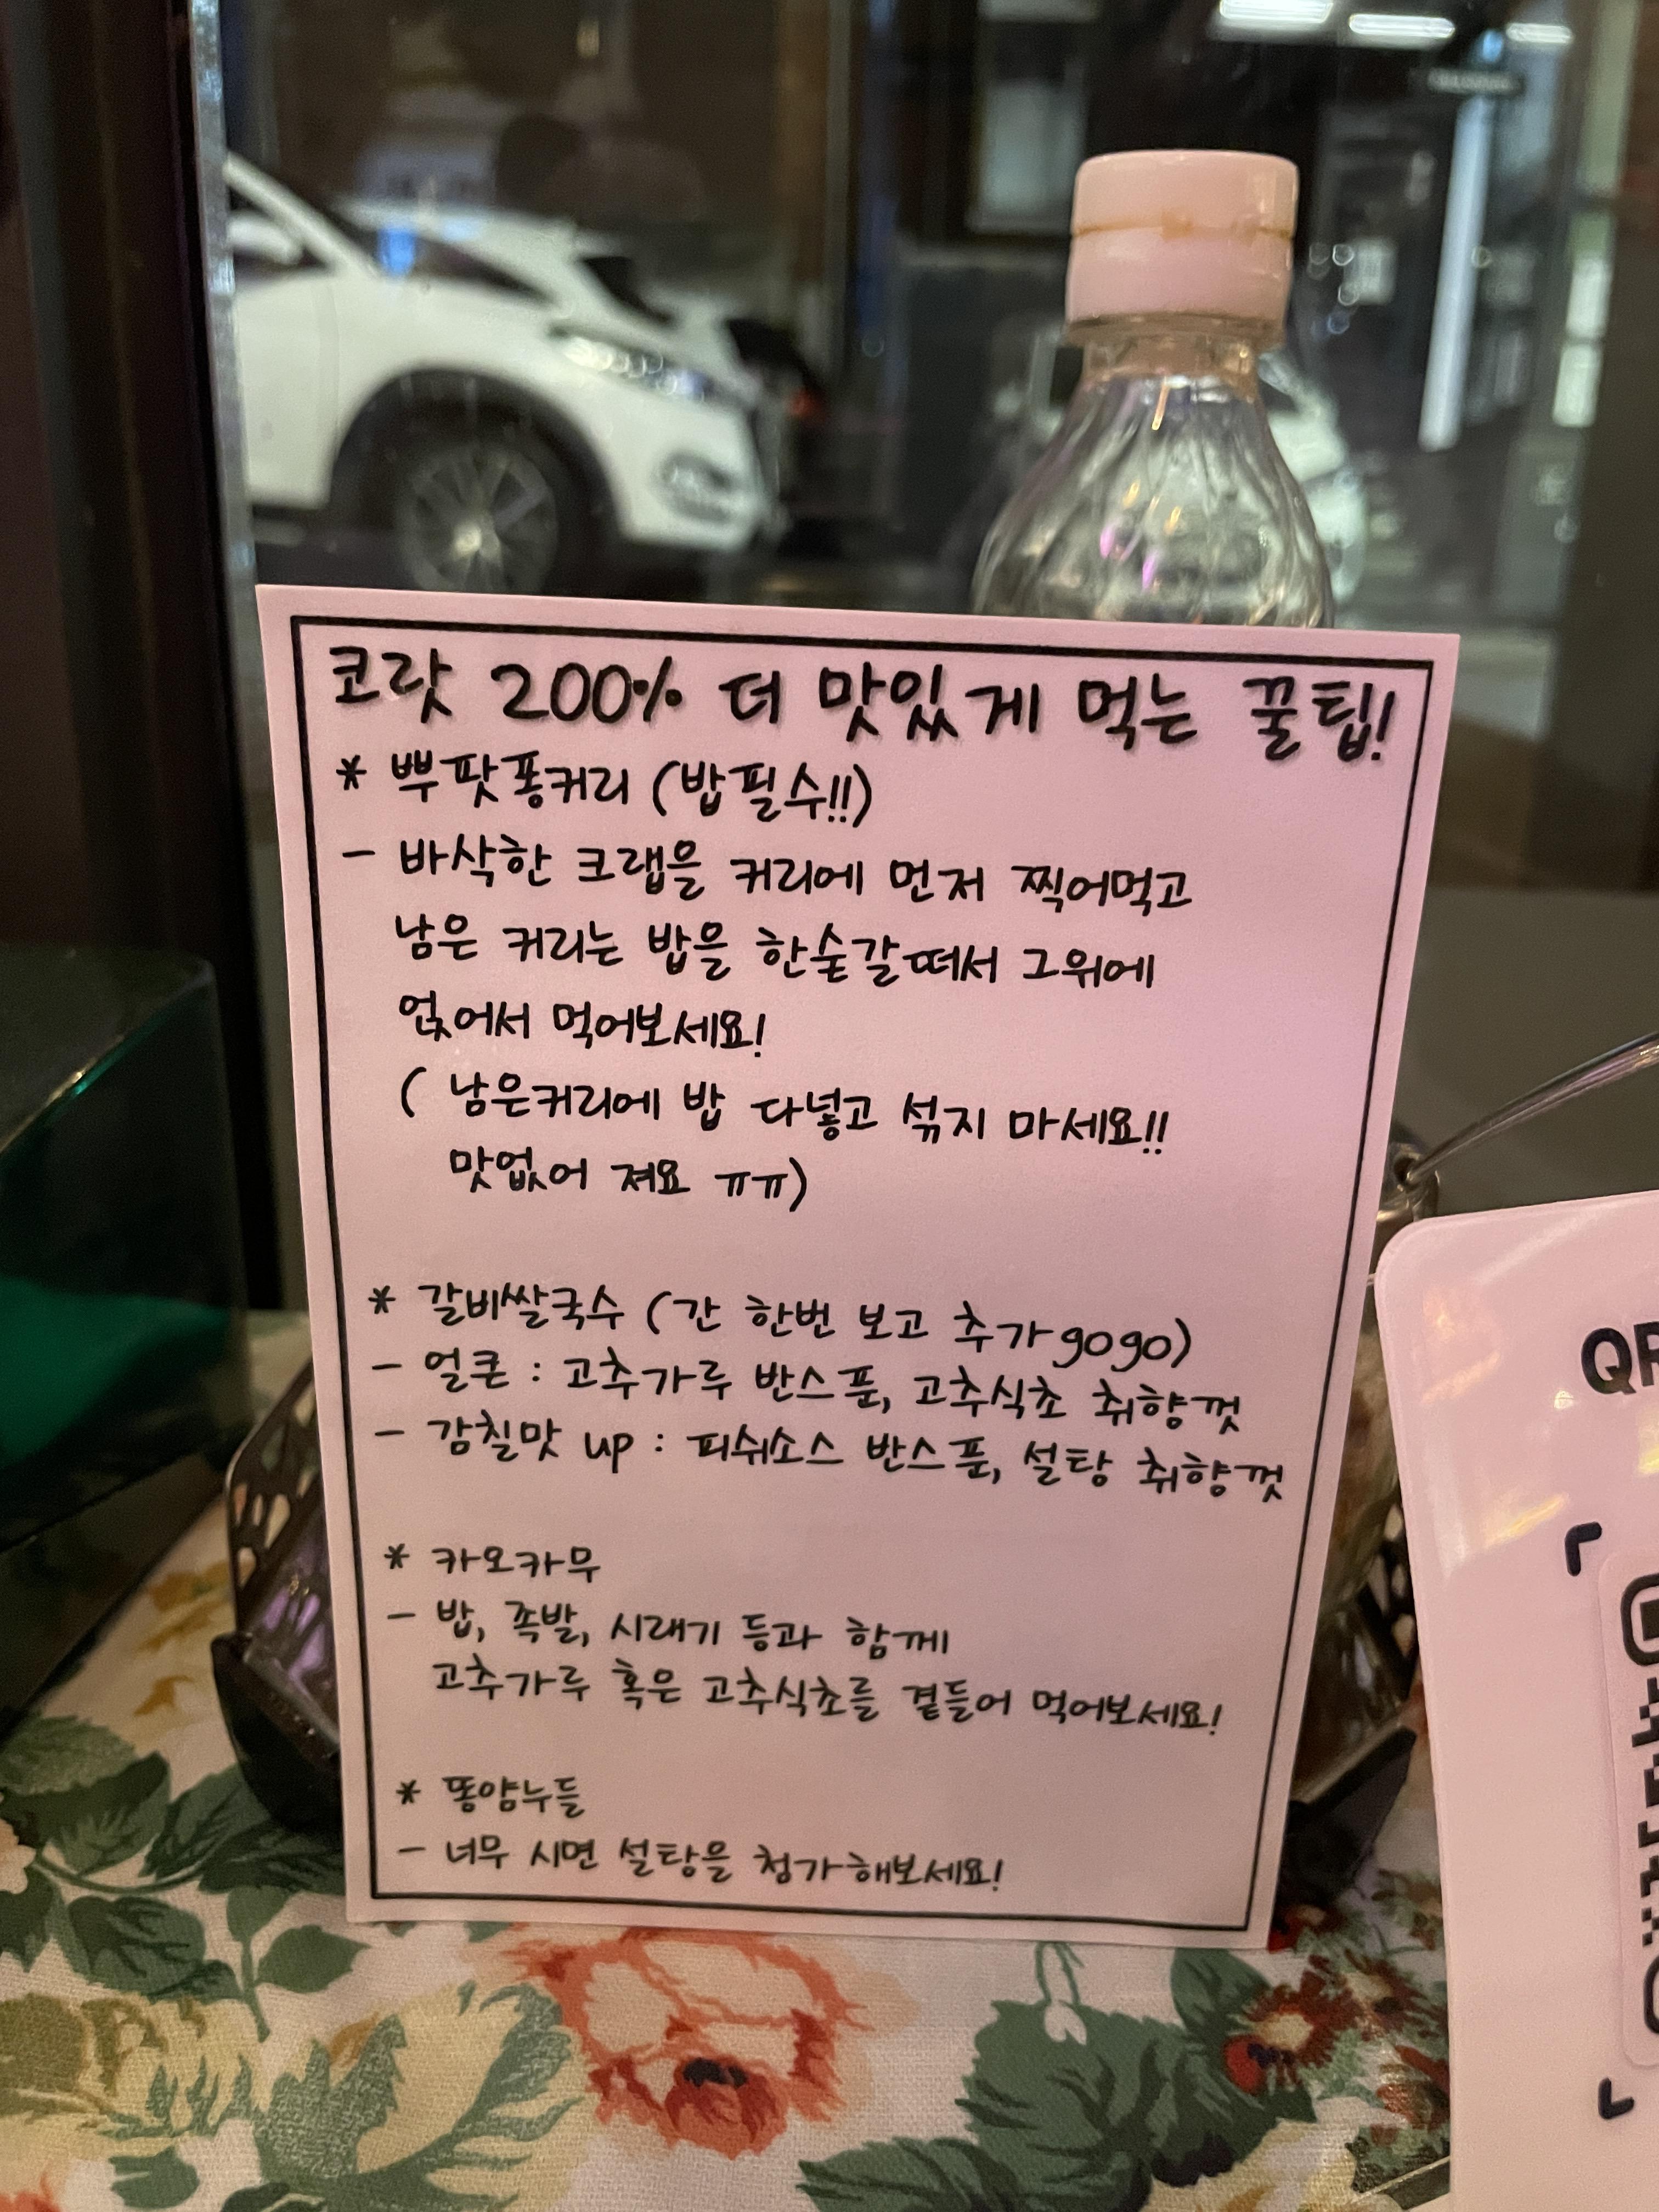 코랏 200% 더 맛있게 먹는 꿀팁!
* 뿌팟퐁커리 (밥필수!!)
- 바삭한 크랩을 커리에 먼저 찍어먹고
남은 커리는 밥을 한숟갈떠서 그위에
얹어서 먹어보세요!
( 남은커리에 밥 다넣고 섞지 마세요!!
맛없어 져요 ㅠㅠ)
* 갈비쌀국수 (간 한번 보고 추가gogo)
- 얼큰 : 고추가루 반스푼, 고추식초 취향껏
- 감칠맛 up : 피쉬소스 반스푼, 설탕 취향껏
* 카오카무
- 밥, 족발, 시래기 등과 함께
고추가루 혹은 고추식초를 곁들어 먹어보세요!
* 똠얌누들
- 너무 시면 설탕을 첨가해보세요!
QR